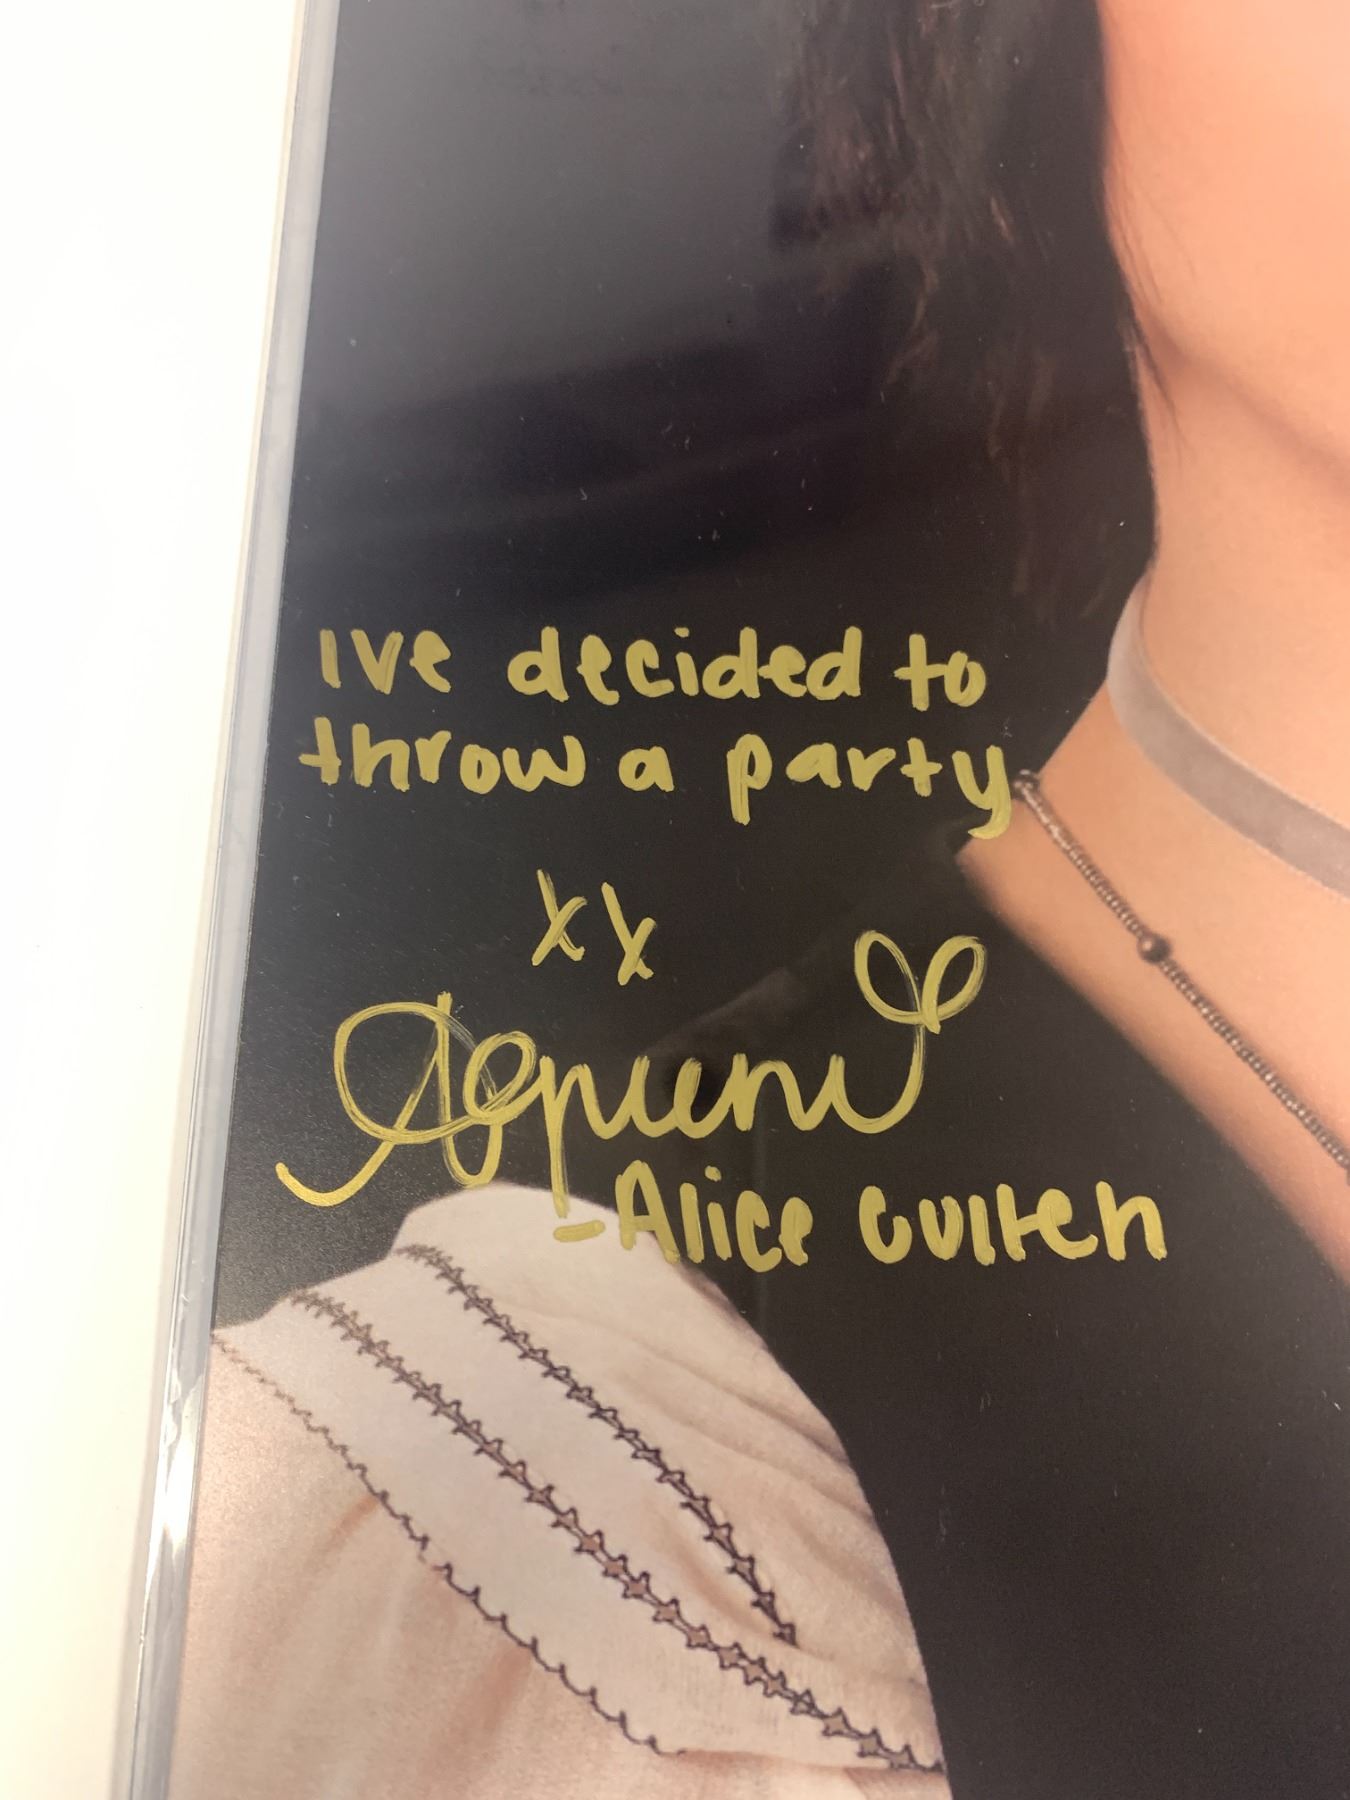 Ive decided to
throw a party
xx
-Alice Cullen